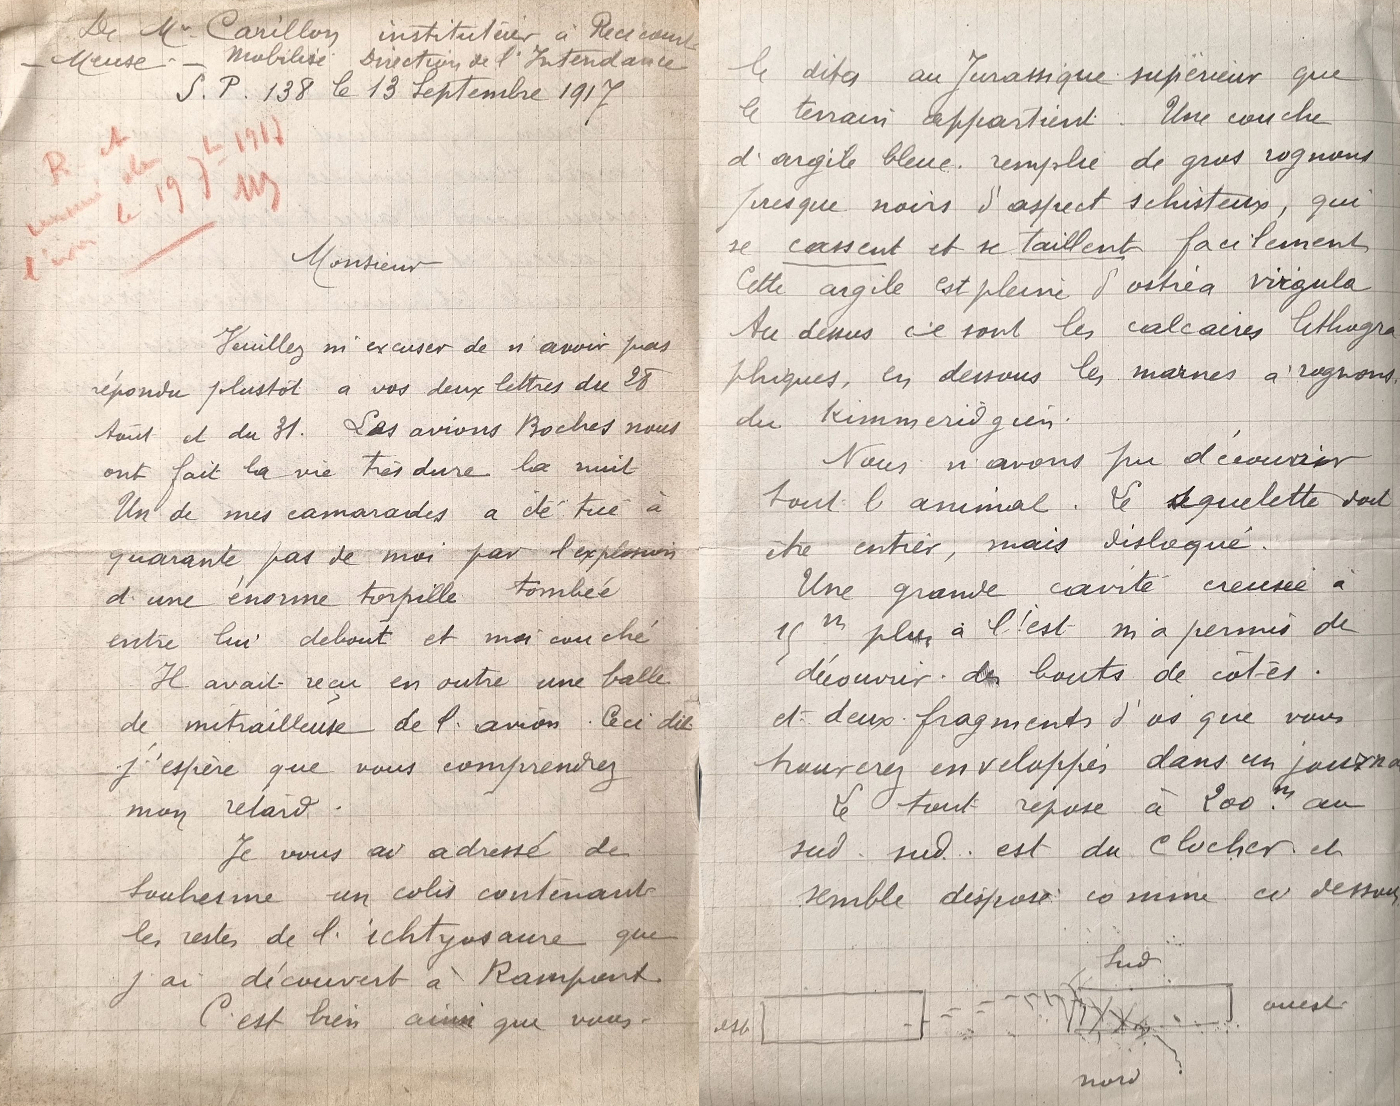 De Mr Carillon instituteur à Recicourt
- Meuse - Mobilisé Direction de l'Intendance
S. P. 138 le 13 Septembre 1917
R et
le 19 1917
Monsieur
Veuillez m'excuser de n'avoir pas
répondu plustôt a vos deux lettres du 28
Aout et du 31. Les avions Boches nous
ont fait la vie très dure la nuit
Un de mes camarades a été tué à
quarante pas de moi par l'explosion
d'une énorme torpille tombée
entre lui debout et moi couché
Il avait reçu en outre une balle
de mitrailleuse de l'avion. Ceci dit
j'espère que vous comprendrez
mon retard.
Je vous ai adressé de
Souhesme un colis contenant
les restes de l'ichtyosaure que
j'ai découvert à Rampont.
C'est bien ainsi que vous
le dites au Jurassique supérieur que
le terrain appartient. Une couche
d'argile bleue remplie de gros rognons
presque noirs d'aspect schisteux, qui
se cassent et se taillent facilement
Cette argile est pleine d'ostréa virgula
Au dessus ce sont les calcaires lithogra
phiques, en dessous les marnes a rognons
du Kimmeridgien.
Nous n'avons pu découvrir
tout l'animal. Le squelette doit
être entier, mais disloqué.
Une grande cavité creusée à
15 m plus à l'est m'a permis de
découvrir des bouts de côtes.
et deux fragments d'os que vous
trouverez enveloppés dans un journa
Le tout repose à 200 m au
sud. sud. est du clocher et
semble disposé comme ci dessous
Sud
est
ouest
nord